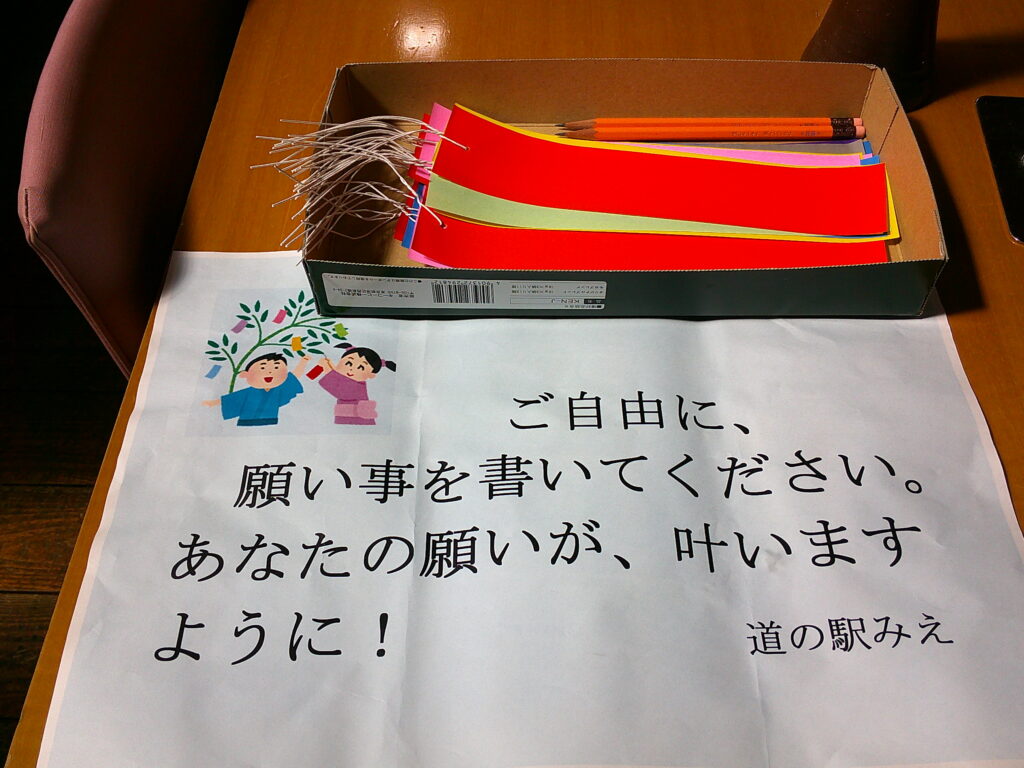 ご自由に、
願い事を書いてください。
あなたの願いが、叶います
ように！
道の駅みえ